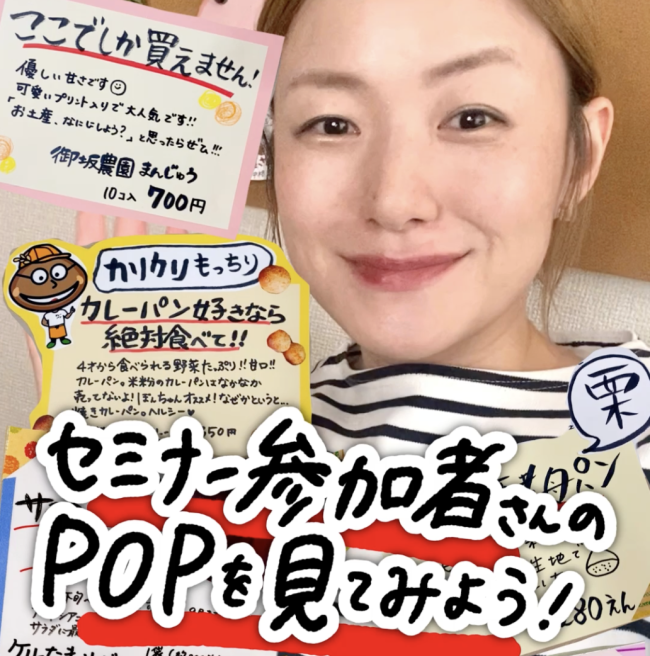 ここでしか買えません!
優しい甘さです☺
可愛いプリント入りで大人気です!!
「お土産、なにしよう?」と思ったらぜひ!!!
御坂農園まんじゅう
10コ入 700円
カリクリもっちり
カレーパン好きなら
絶対食べて!!
4才から食べられる野菜たっぷり!!甘口!!
カレーパン。米粉のカレーパンはなかなか
売ってないよ!ぼんちゃんオススメ!なぜかというと…
焼きカレーパン。ヘルシー♥
50円
栗
パン
生地で
280えん
セミナー参加者さんの
POPを見てみよう!
サ
サラダに